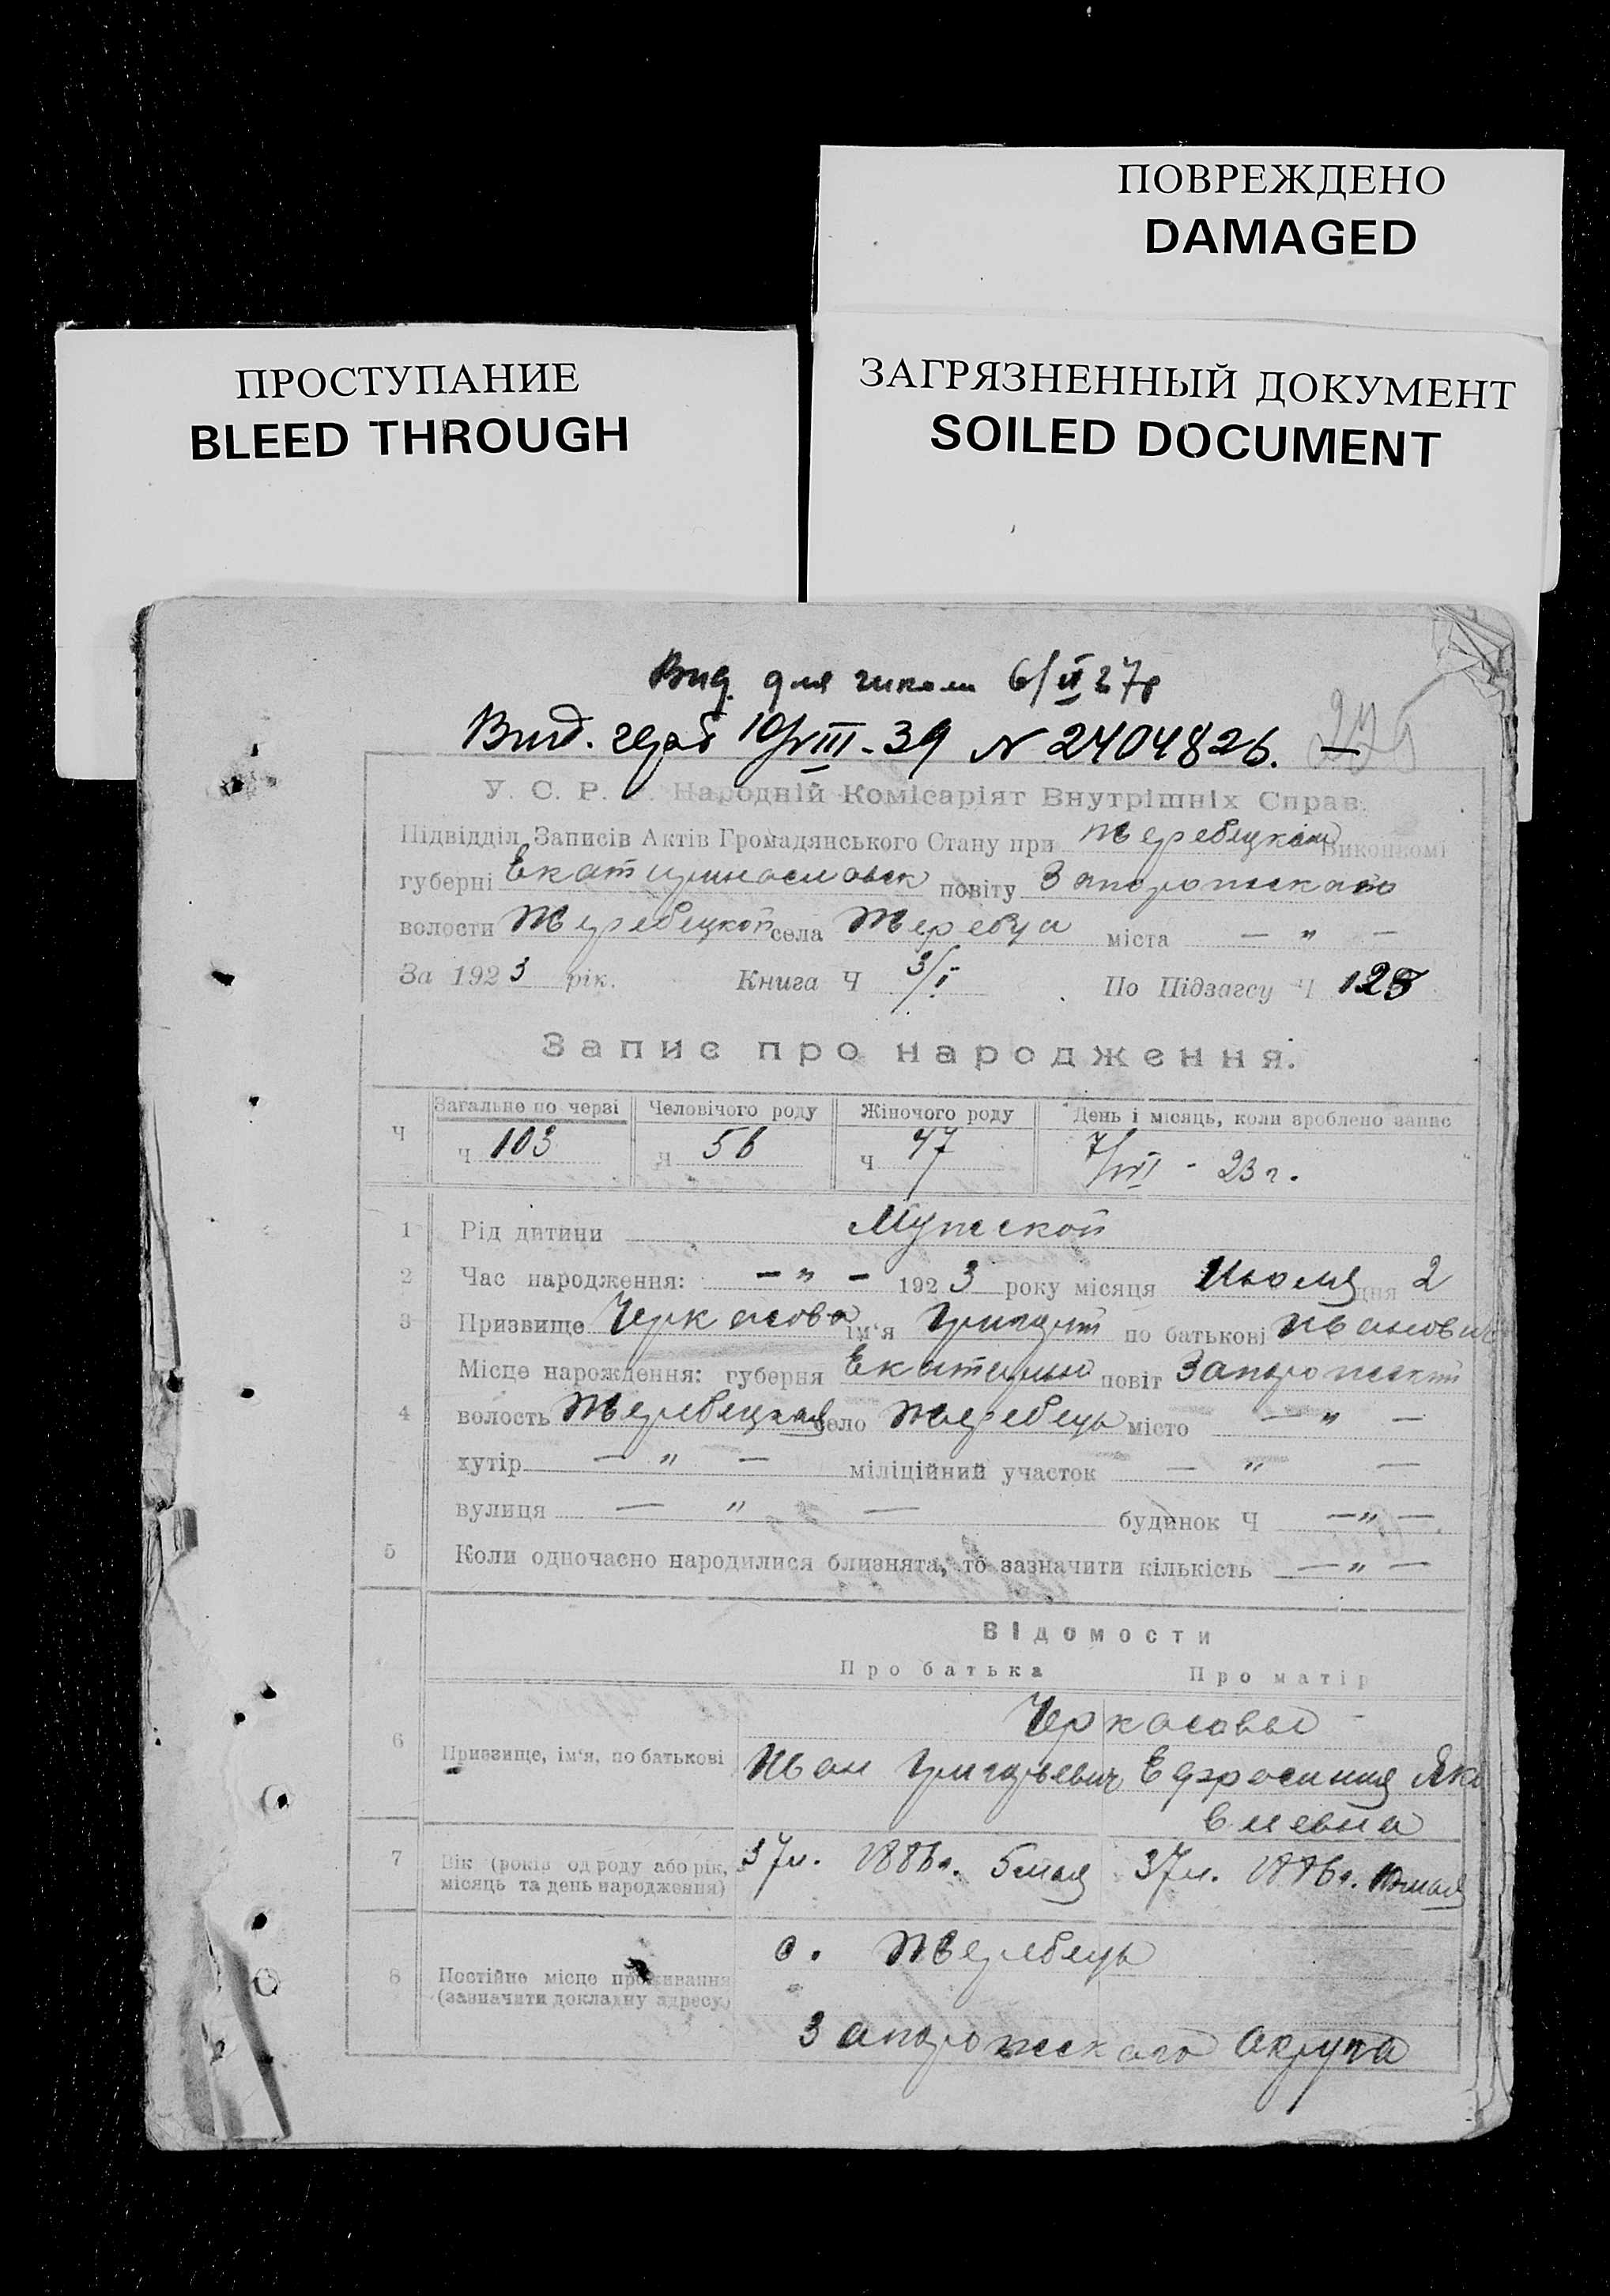 ПОВРЕЖДЕНО
DAMAGED
ПРОСТУПАНИЕ
BLEED THROUGH
ЗАГРЯЗНЕННЫЙ ДОКУМЕНТ
SOILED DOCUMENT
Вид. для школи 6/II 27р
Вид. герб 10/VIII-39 N 2404826. —
У. С. Р. Р. Народній Комісаріят Внутрішніх Справ.
Підвідділ Записів Актів Громадянського Стану при Жеребецком Виконкомі
губерні Екатеринославск повіту Запорожскаго
волости Жеребецкой села Жеребца міста — " —
За 1923 рік. Книга Ч 3/I По Підзагсу Ч 128
Запис про народження.
Ч Загальне по черзі Человічого роду Жіночого роду День і місяць, коли зроблено запис
Ч 103 Ч 56 Ч 47 7/VII - 23 г.
1 Рід дитини Мужской
2 Час народження: — " — 1923 року місяця Июля дня 2
3 Призвище Черкасова ім'я Григорій по батькові Иванович
Місце народження: губерня Екатерино повіт Запорожский
4 волость Жеребецкая село Жеребець місто — " —
хутір — " — міліційний участок — " —
вулиця — " — будинок Ч — " —
5 Коли одночасно народилися близнята, то зазначити кількість — " —
Відомости
Про батька Про матір
Черкасовы
6 Призвище, ім'я, по батькові Иван Григорьевич Ефросиния Яко
влевна
7 Вік (років од роду або рік, місяць та день народження) 37 л. 1886 г. 5 мая 37 л. 1886 г. 10 мая
8 Постійне місце проживання (зазначити докладну адресу) с. Жеребець
Запорожскаго Округа